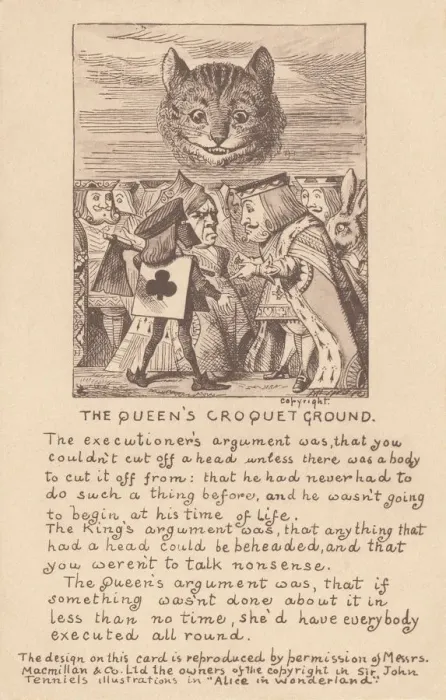 copyright.
THE QUEEN'S CROQUET GROUND.
The executioner's argument was, that you
couldn't cut off a head unless there was a body
to cut it off from: that he had never had to
do such a thing before, and he wasn't going
to begin at his time of life.
The King's argument was, that anything that
had a head could be beheaded, and that
you weren't to talk nonsense.
The Queen's argument was, that if
something wasn't done about it in
less than no time, she'd have everybody
executed all round.
The design on this card is reproduced by permission of Messrs.
Macmillan & Co. Ltd the owners of the copyright in Sir John
Tenniels illustrations in "Alice in Wonderland"